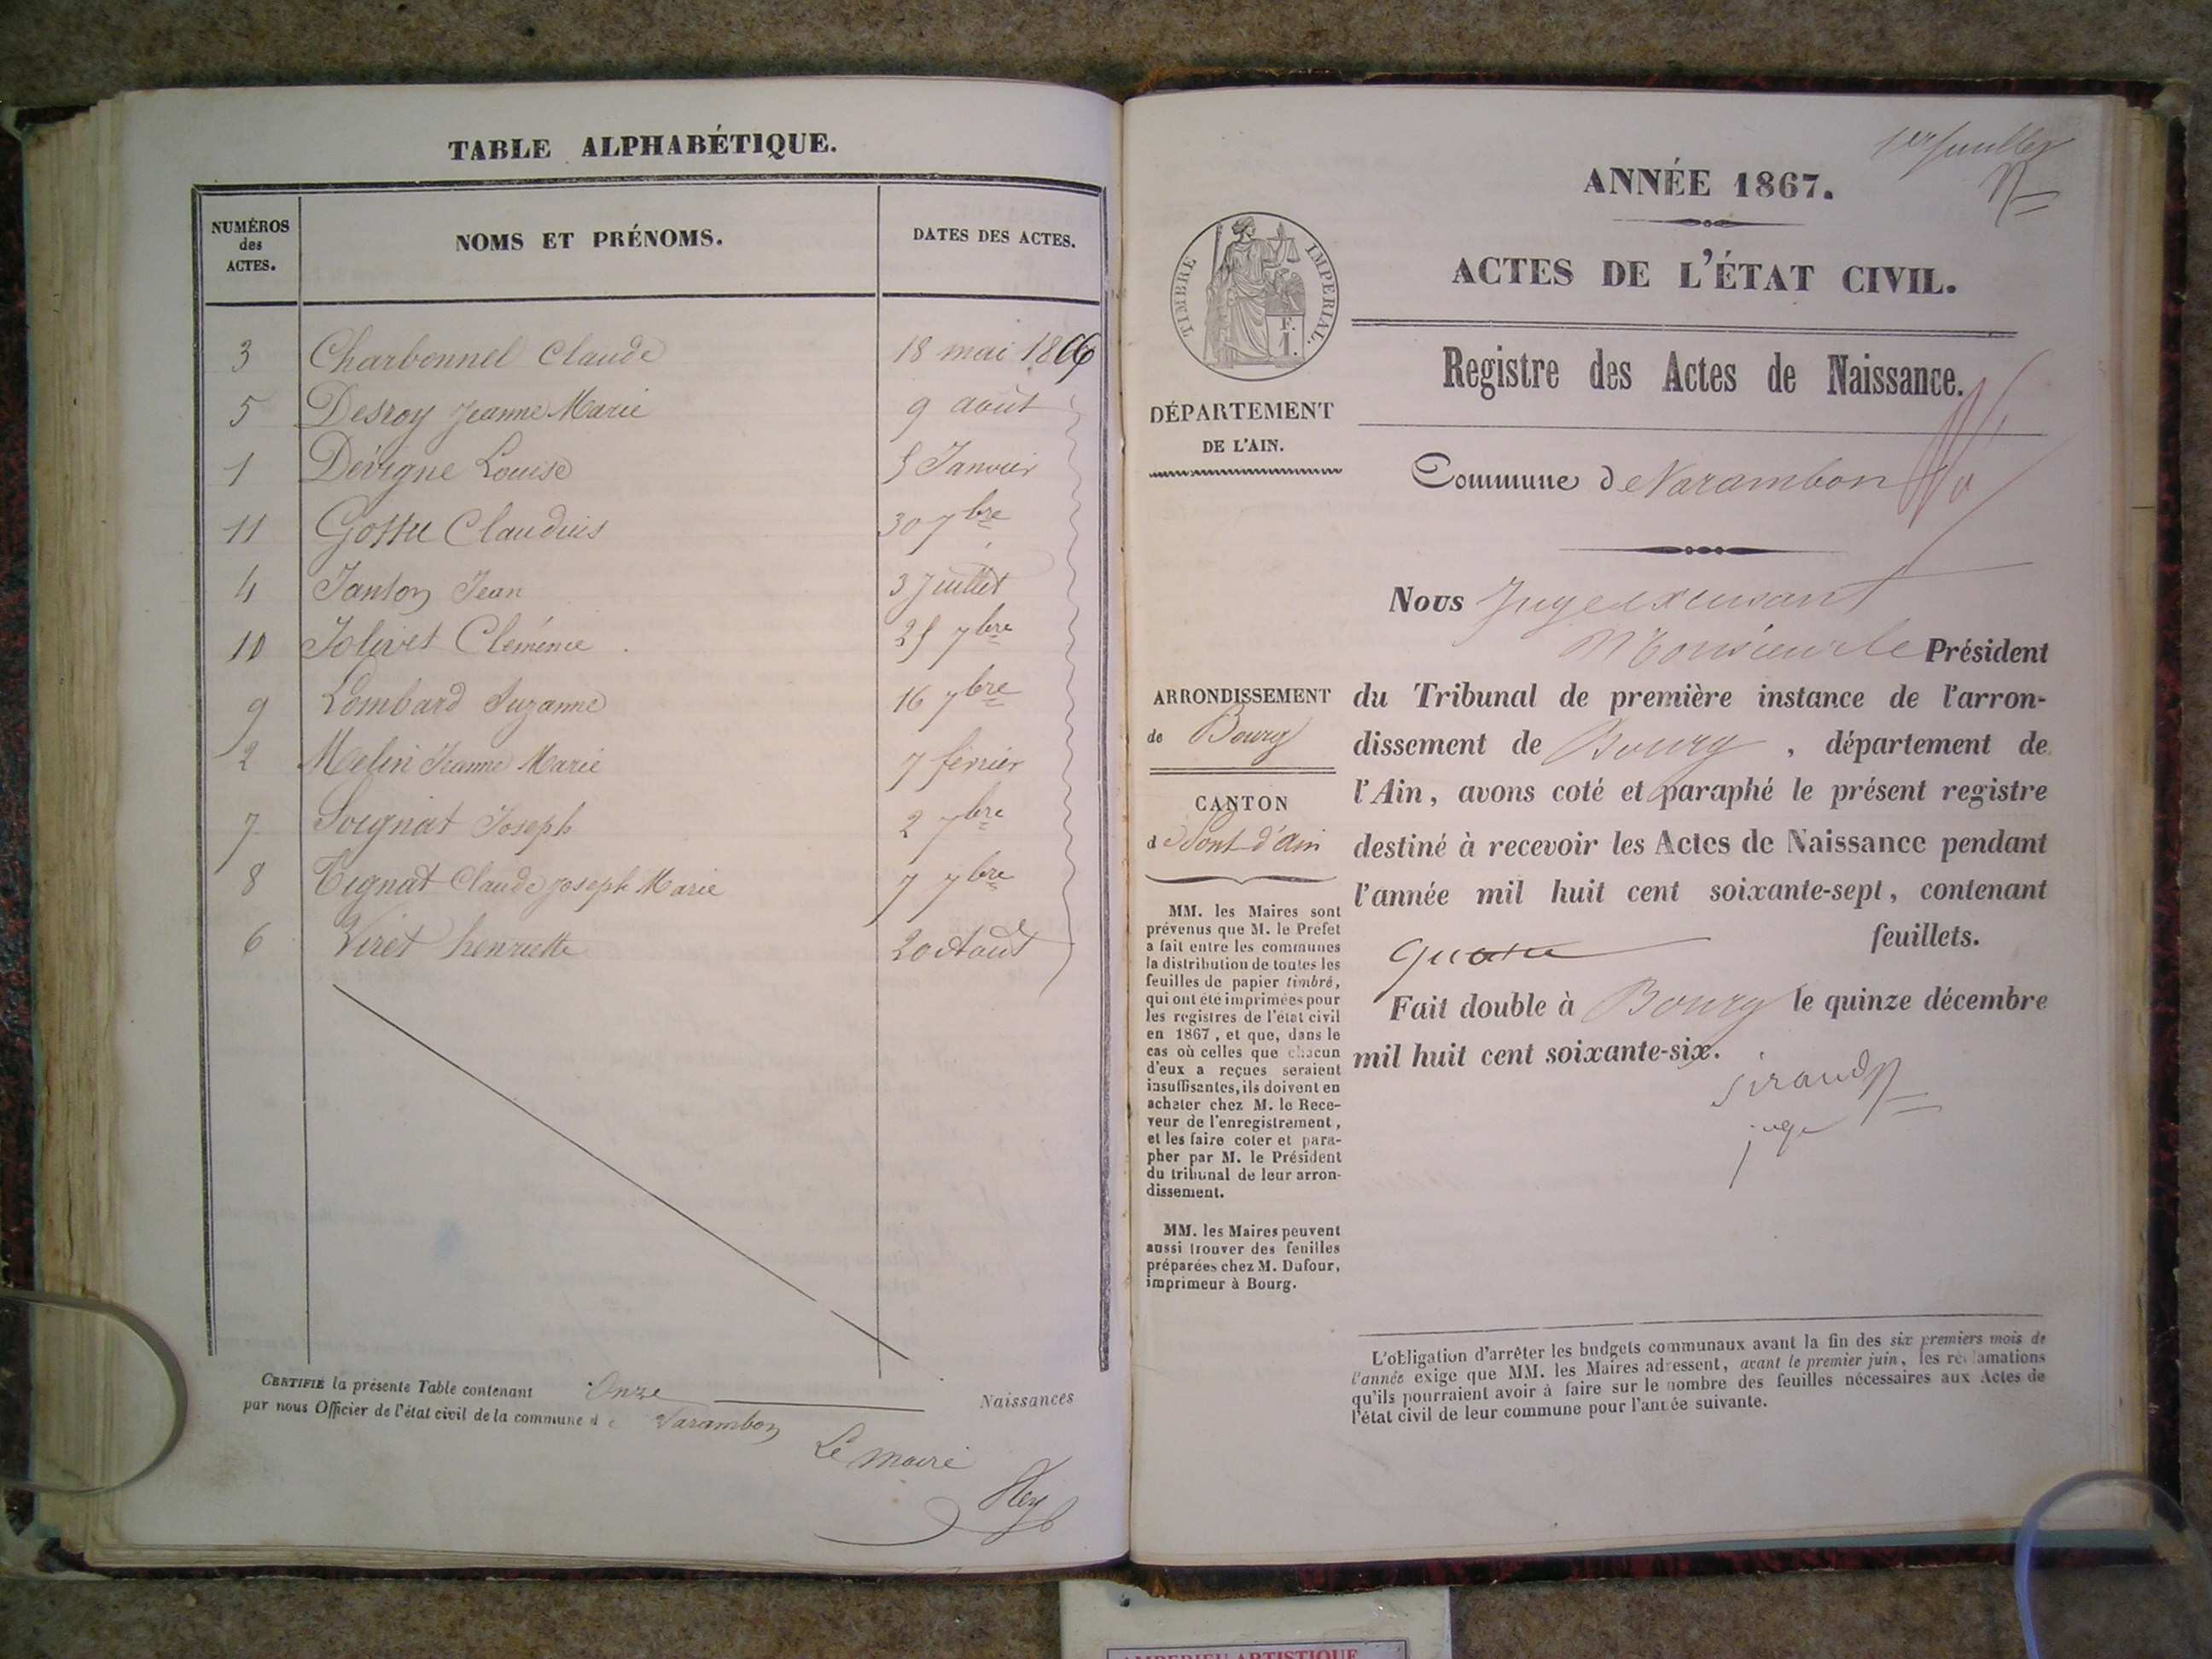 TABLE ALPHABÉTIQUE.
NUMÉROS des ACTES.
NOMS ET PRÉNOMS.
DATES DES ACTES.
3 Charbonnel Claude 18 mai 1866
5 Desroy Jeanne Marie 9 août
1 Dévigne Louise 5 Janvier
11 Claudius 30 7bre
4 Janton Jean 3 Juillet
10 Jolivet Clémence 25 7bre
9 Lombard Suzanne 16 7bre
2 Jeanne Marie 7 février
7 Soignat Joseph 2 7bre
8 Tignat Claude Joseph Marie 7 7bre
6 Viret henriette 20 Août
CERTIFIÉ la présente Table contenant Onze Naissances
par nous Officier de l'état civil de la commune de Varambon
Le maire
1er feuillet
ANNÉE 1867.
ACTES DE L'ÉTAT CIVIL.
TIMBRE IMPERIAL.
F.
1.
Registre des Actes de Naissance.
DÉPARTEMENT
DE L'AIN.
Commune de Varambon
Nous Juge
Monsieur le Président
ARRONDISSEMENT
de Bourg
du Tribunal de première instance de l'arron-
dissement de Bourg, département de
l'Ain, avons coté et paraphé le présent registre
destiné à recevoir les Actes de Naissance pendant
l'année mil huit cent soixante-sept, contenant
quatre feuillets.
Fait double à Bourg le quinze décembre
mil huit cent soixante-six.
juge
CANTON
de Pont d'ain
MM. les Maires sont
prévenus que M. le Préfet
a fait entre les communes
la distribution de toutes les
feuilles de papier timbré,
qui ont été imprimées pour
les registres de l'état civil
en 1867, et que, dans le
cas où celles que chacun
d'eux a reçues seraient
insuffisantes, ils doivent en
acheter chez M. le Rece-
veur de l'enregistrement,
et les faire coter et para-
pher par M. le Président
du tribunal de leur arron-
dissement.
MM. les Maires peuvent
aussi trouver des feuilles
préparées chez M. Dufour,
imprimeur à Bourg.
L'obligation d'arrêter les budgets communaux avant la fin des six premiers mois de
l'année exige que MM. les Maires adressent, avant le premier juin, les réclamations
qu'ils pourraient avoir à faire sur le nombre des feuilles nécessaires aux Actes de
l'état civil de leur commune pour l'année suivante.